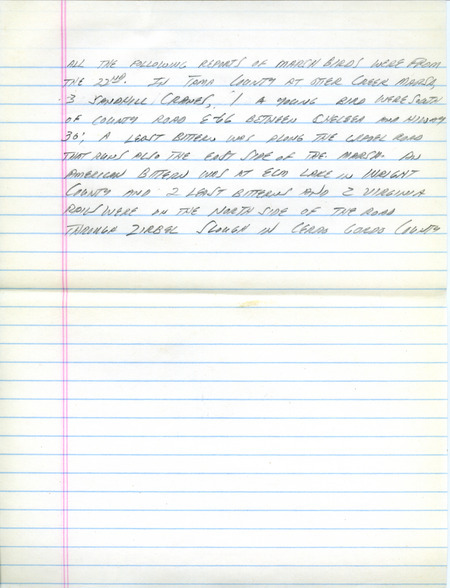 ALL THE FOLLOWING REPORTS OF MARSH BIRDS WERE FROM
THE 22ND. IN TAMA COUNTY AT OTTER CREEK MARSH,
3 SANDHILL CRANES, 1 A YOUNG BIRD WERE SOUTH
OF COUNTY ROAD E66 BETWEEN CHELSEA AND HIGHWAY
30; A LEAST BITTERN WAS ALONG THE GRAVEL ROAD
THAT RUNS ALSO THE EAST SIDE OF THE MARSH. AN
AMERICAN BITTERN WAS AT ELM LAKE IN WRIGHT
COUNTY AND 2 LEAST BITTERNS AND 2 VIRGINIA
RAILS WERE ON THE NORTH SIDE OF THE ROAD
THROUGH ZIRBEL SLOUGH IN CERRO GORDO COUNTY